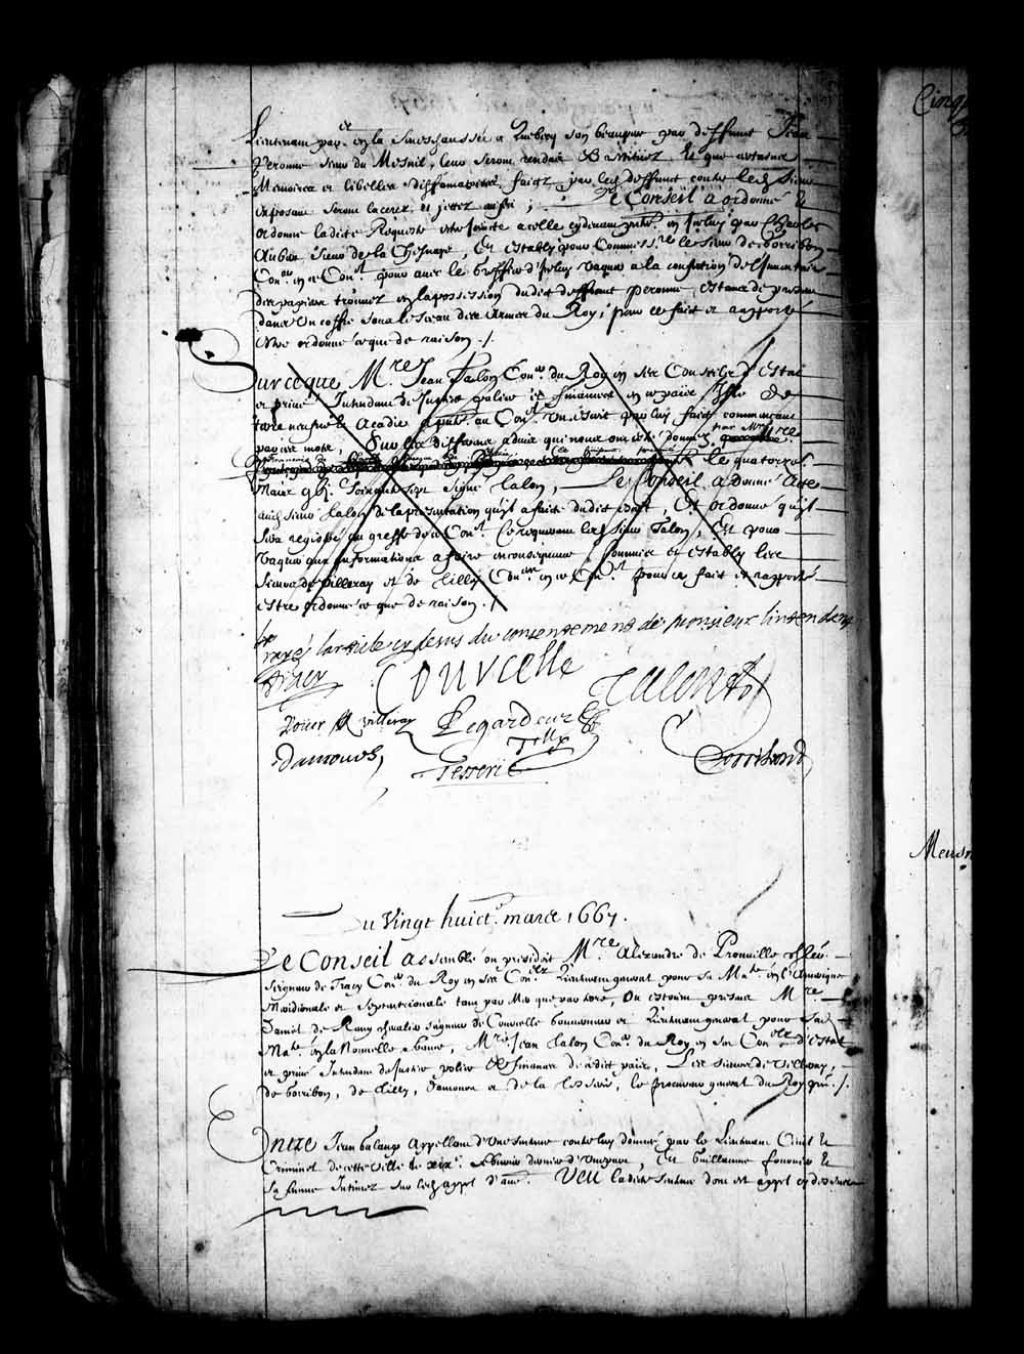 Lieutenant par.er en la Seneschaussée a Quebecq son beaupere par deffunct Jean
Peronne sieur du Mesnil, leur seront rendus & restituez Et que certains
Memoires et libelles diffamatoires faictz par led. deffunct contre lesd. sieurs
exposans seront lacerez et jettez au feu ; Le Conseil a ordonné &
ordonne ladite Requeste estre jointe a celle cydevant pnte. en iceluy par Charles
Aubert sieur de la Chesnaye, Et estably pour Commissre. le sieur de Gorribon
Con.er en ce Con.l pour avec le Greffier d'iceluy vaquer a la confection de l'Inventaire
des papiers trouvez en la possession dudit deffunct Peronne, estans de present
dans un coffre sous le sceau des Armes du Roy, pour ce fait et raporté
estre ordonné ce que de raison ./.
Sur ce que M.re Jean Talon Con.er du Roy en ses Conseilz d'estat
et privé Intendant de Justice police & finances en ce païs Isle de
terre neufve & Acadie a pnté. au Con.l un escrit par luy fait commenceant
par ces motz, Sur les differens advis qui nous ont esté donnez, par M.re
le quatorze.
Mars gbj.c soixante sept signé Talon, Le Conseil a donné Acte
aud. sieur Talon de la presentation qu'il a faite dudit escrit, Et ordonné qu'il
sera registré au greffe dud. Con.l Ce requerant led. sieur Talon, Et pour
vaquer aux Informations a faire en consequence Commis et estably les
sieurs de Villeray et de Tilly Con.ers en ce Con.l pour ce fait et raporté
estre ordonné ce que de raison ./.
rayé l'article cy dessus du consentement de Monsieur l'intendant
Tracy Courcelle Talon
Rouer Villeray Legardeur
Tilly
Damours, Tesserie Gorribon
Du Vingt huict.e mars 1667.
Le Conseil assemblé ou presidoit M.re Alexandre de Prouville chlier.
seigneur de Tracy Con.er du Roy en ses Con.lz Lieutenant general pour Sa Ma.té en l'Amerique
Meridionale et Septentrionale tant par Mer que par terre, Ou estoient presens M.re
Daniel de Remy chevalier seigneur de Courcelle Gouverneur et Lieutenant general pour Sad.
Ma.té en la Nouvelle france, M.re Jean Talon Con.er du Roy en ses Con.lz d'Estat
et privé Intendant de Justice police & finance de cedit païs, Les sieurs de Villeray,
de Gorribon, de Tilly, Damours et de la Tesserie, le procureur general du Roy pnt. ./.
Entre Jean Appellant d'une sentence contre luy donnée par le Lieutenant Civil &
Criminel de cette ville le xix.e febvrier dernier d'une part, Et Guillaume fournier &
sa femme Intimez sur led. appel d'au.e Veu ladite sentence dont est appel cy dessus
Cinq
Meusn